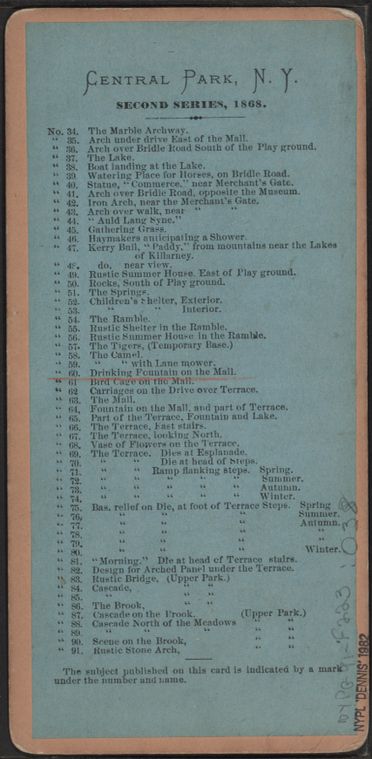 CENTRAL PARK, N. Y.
SECOND SERIES, 1868.
No. 34. The Marble Archway.
" 35. Arch under drive East of the Mall.
" 36. Arch over Bridle Road South of the Play ground.
" 37. The Lake.
" 38. Boat landing at the Lake.
" 39. Watering Place for Horses, on Bridle Road.
" 40. Statue, "Commerce," near Merchant's Gate.
" 41. Arch over Bridle Road, opposite the Museum.
" 42. Iron Arch, near the Merchant's Gate.
" 43. Arch over walk, near " "
" 44. "Auld Lang Syne."
" 45. Gathering Grass.
" 46. Haymakers anticipating a Shower.
" 47. Kerry Bull, "Paddy," from mountains near the Lakes
of Killarney.
" 48. do. near view.
" 49. Rustic Summer House, East of Play ground.
" 50. Rocks, South of Play ground.
" 51. The Springs.
" 52. Children's Shelter, Exterior.
" 53. " " Interior.
" 54. The Ramble.
" 55. Rustic Shelter in the Ramble.
" 56. Rustic Summer House in the Ramble.
" 57. The Tigers, (Temporary Base.)
" 58. The Camel.
" 59. " " with Lane mower.
" 60. Drinking Fountain on the Mall.
" 61 Bird Cage on the Mall.
" 62 Carriages on the Drive over Terrace.
" 63. The Mall.
" 64. Fountain on the Mall, and part of Terrace.
" 65. Part of the Terrace, Fountain and Lake.
" 66. The Terrace, East stairs.
" 67. The Terrace, looking North.
" 68. Vase of Flowers on the Terrace.
" 69. The Terrace. Dies at Esplanade.
" 70. " " Die at head of Steps.
" 71. " " Ramp flanking steps. Spring.
" 72. " " " " " Summer.
" 73. " " " " " Autumn.
" 74. " " " " " Winter.
" 75. Bas. relief on Die, at foot of Terrace Steps. Spring
" 76. " " " " Summer.
" 77. " " " " Autumn.
" 78. " " " "
" 79. " " " "
" 80. " " " " Winter.
" 81. "Morning." Die at head of Terrace stairs.
" 82. Design for Arched Panel under the Terrace.
" 83. Rustic Bridge, (Upper Park.)
" 84. Cascade, " "
" 85. " " "
" 86. The Brook, " "
" 87. Cascade on the Brook. (Upper Park.)
" 88. Cascade North of the Meadows " "
" 89. " " " " "
" 90. Scene on the Brook, " "
" 91. Rustic Stone Arch, " "
The subject published on this card is indicated by a mark
under the number and name.
NYPL "DENNIS" 1982